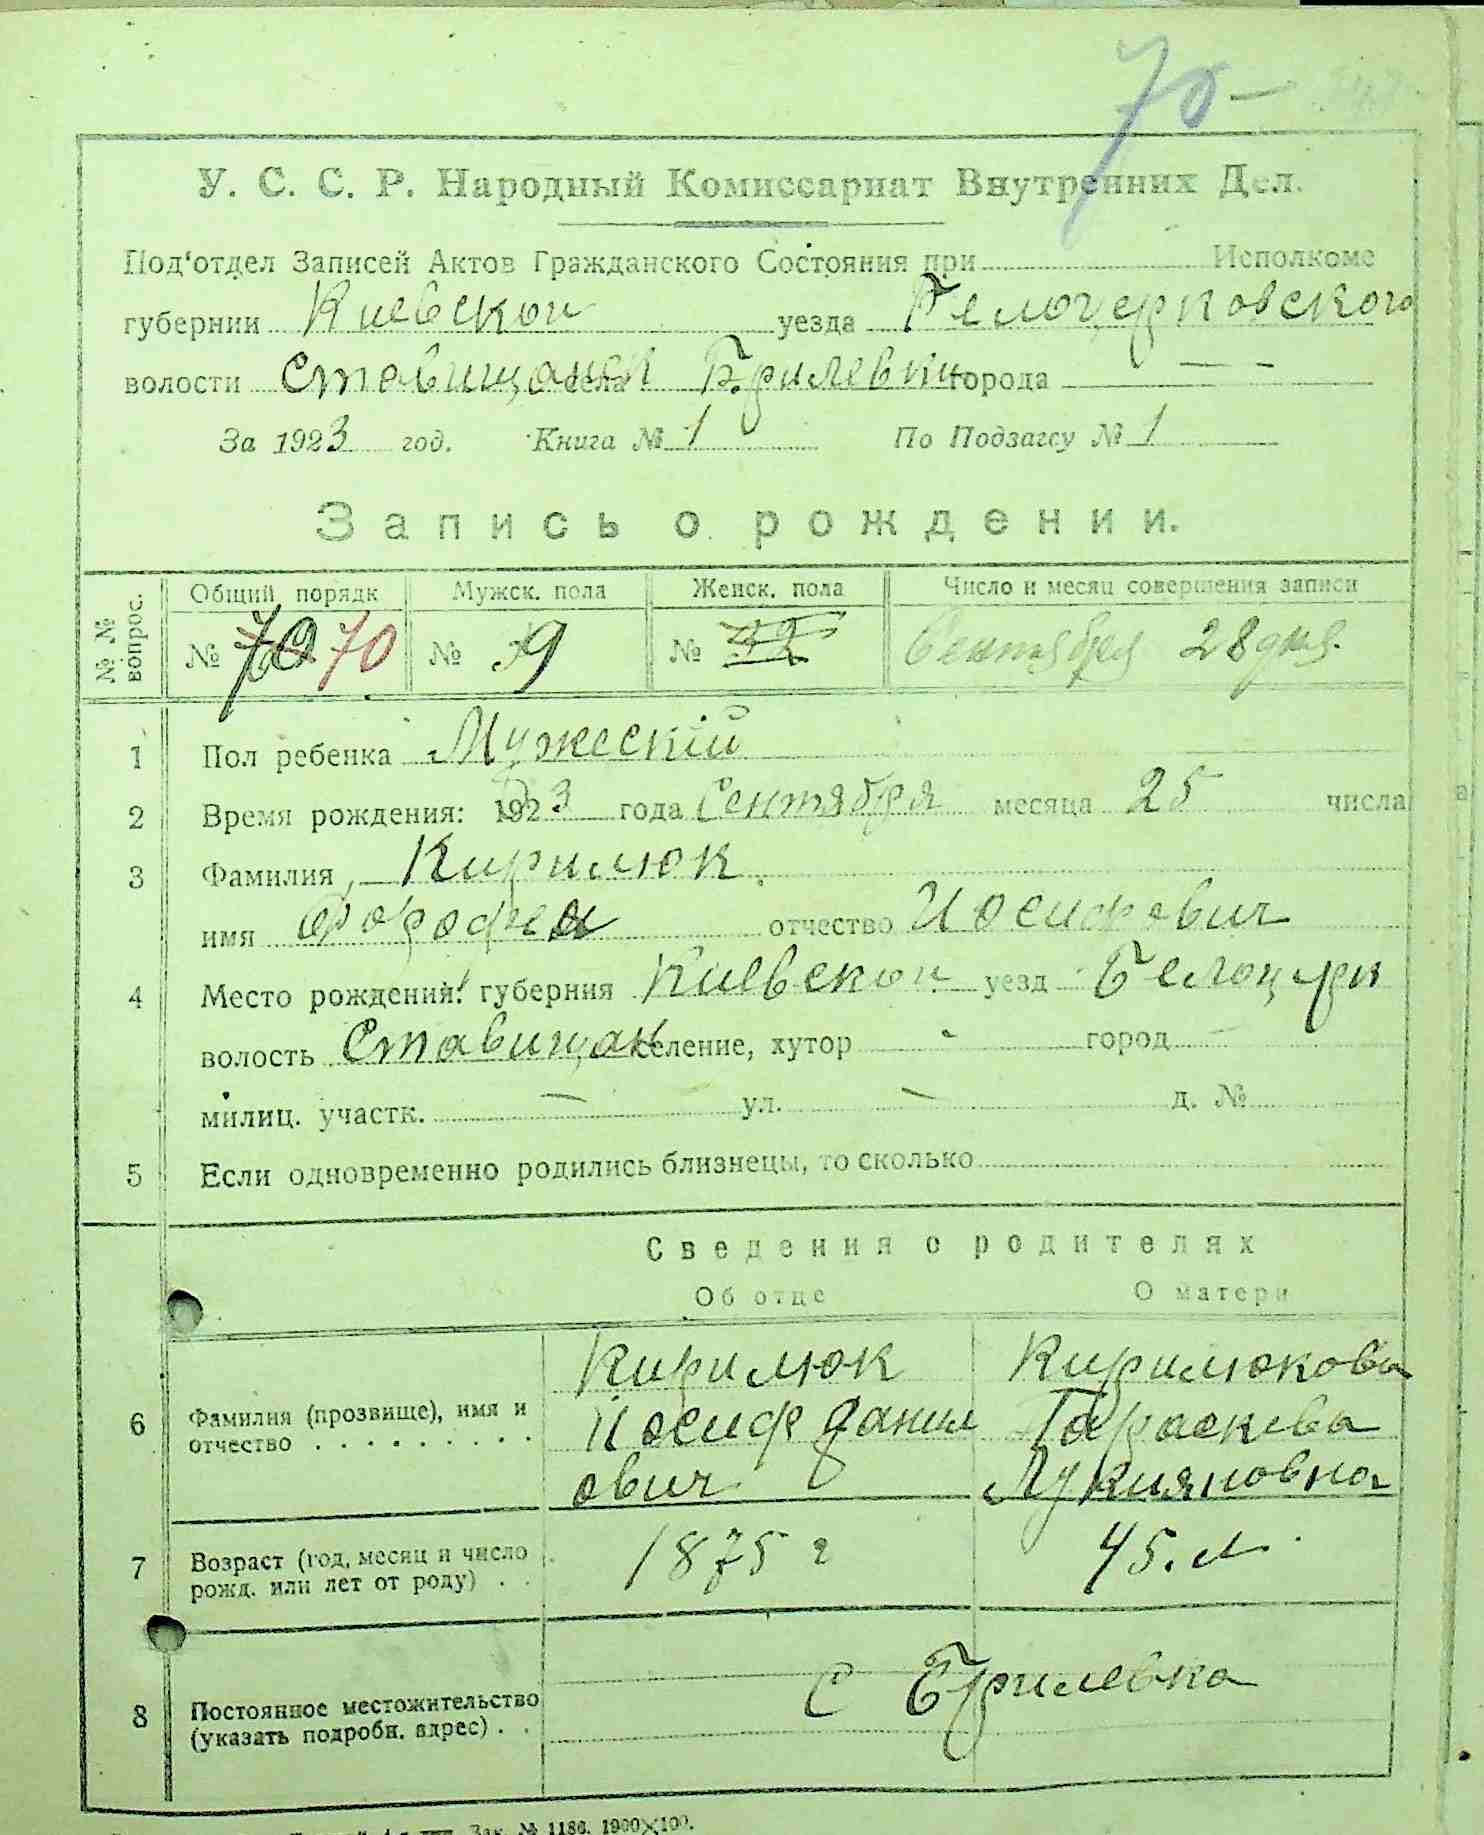 70 —
У. С. С. Р. Народный Комиссариат Внутренних Дел.
Под'отдел Записей Актов Гражданского Состояния при Исполкоме
губернии Киевской уезда Белоцерковского
волости Ставищанск села Брилевки города — —
За 1923 год. Книга № 1 По Подзагсу № 1
Запись о рождении.
№ № вопрос. Общий порядк Мужск. пола Женск. пола Число и месяц совершения записи
№ 70 70 № 39 № 32 Сентября 28 дня.
1 Пол ребенка Мужескій
2 Время рождения: 1923 года Сентября месяца 25 числа
3 Фамилия, Кирилюк.
имя отчество Иосифович
4 Место рождения: губерния Киевской уезд Белоцерк
волость Ставищан селение, хутор - город —
милиц. участк. — ул. — д. №
5 Если одновременно родились близнецы, то сколько
Сведения о родителях
Об отце О матери
6 Фамилия (прозвище), имя и отчество . . . . . . . . .
Кирилюк Иосиф Данил ович
Кирилюкова Параскева Лукияновна
7 Возраст (год, месяц и число рожд. или лет от роду) . .
1875 г 45. л.
8 Постоянное местожительство (указать подробн. адрес) . .
С Брилевка
Зак. № 1186. 1900×100.